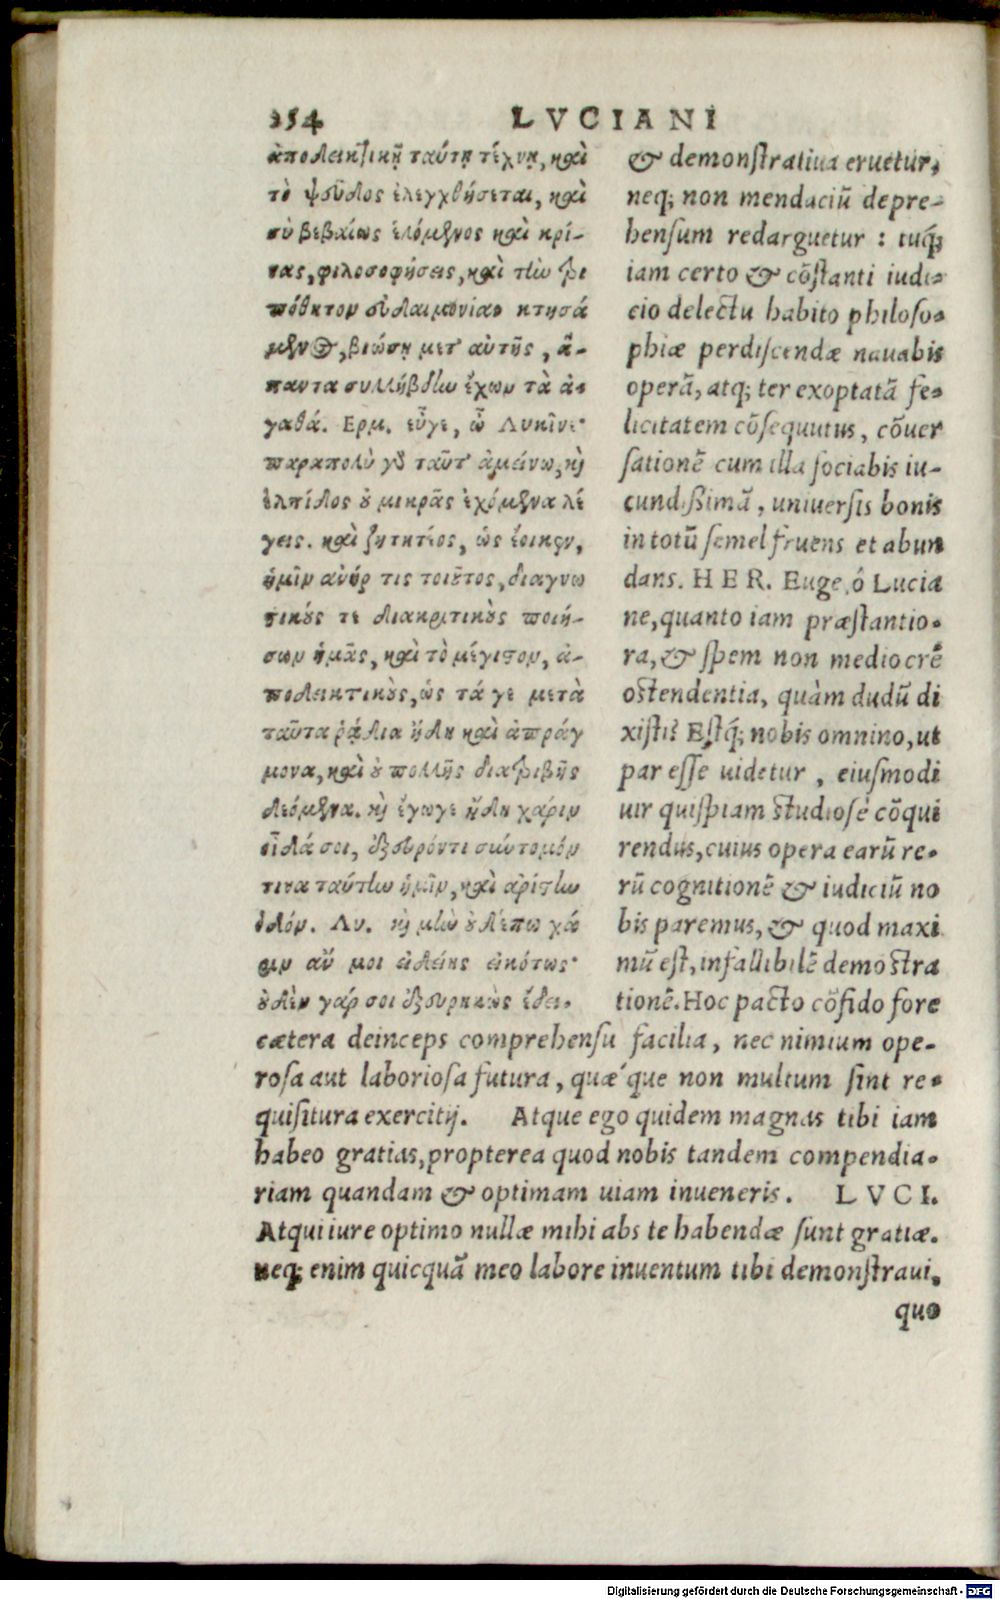 254 LVCIANI
ἀποδεικτικῇ ταύτῃ τέχνῃ, καὶ
τὸ ψεῦδος ἐλεγχθήσεται, καὶ
σὺ βεβαίως ἑλόμενος καὶ κρί-
νας, φιλοσοφήσεις, καὶ τὴν τρι
πόθητον εὐδαιμονίαν κτησά
μενος, βιώσῃ μετ' αὐτῆς, ἅ-
παντα συλλήβδην ἔχων τὰ ἀ-
γαθά. Ερμ. εὖγε, ὦ Λυκῖνε·
παραπολὺ γὸ ταῦτ' ἀμείνω, κὶ
ἐλπίδος οὐ μικρᾶς ἐχόμενα λέ
γεις. καὶ ζητητέος, ὡς ἔοικεν,
ἡμῖν ἀνήρ τις τοιοῦτος, διαγνω
τικούς τε διακριτικοὺς ποιή-
σων ἡμᾶς, καὶ τὸ μέγιστον, ἀ-
ποδεικτικοὺς, ὡς τά γε μετὰ
ταῦτα ῥᾴδια ἤδη καὶ ἀπράγ
μονα, καὶ οὐ πολλῆς διατριβῆς
δεόμενα. κὶ ἔγωγε ἤδη χάριν
οἶδά σοι, ἐξευρόντι σύντομόν
τινα ταύτην ἡμῖν, καὶ ἀρίστην
ὁδόν. Λυ. κὶ μὴν οὐδέπω χά
ριν ἄν μοι εἰδείης εἰκότως·
οὐδὲν γάρ σοι ἐξευρηκὼς ἔδει-
& demonstratiua eruetur,
neq; non mendaciũ depre-
hensum redarguetur : tuq́;
iam certo & cõstanti iudi-
cio delectu habito philoso-
phiæ perdiscendæ nauabis
operã, atq; ter exoptatã fe-
licitatem cõsequutus, cõuer
sationẽ cum illa sociabis iu-
cundißimã, uniuersis bonis
in totũ semel fruens et abun
dans. HER. Euge, ô Lucia
ne, quanto iam præstantio-
ra, & spem non mediocrẽ
ostendentia, quàm dudũ di
xisti? Estq́; nobis omnino, ut
par esse uidetur, eiusmodi
uir quispiam studiosè cõqui
rendus, cuius opera earũ re-
rũ cognitionẽ & iudiciũ no
bis paremus, & quod maxi
mũ est, infallibilẽ demostra
tionẽ. Hoc pacto cõfido fore
cætera deinceps comprehensu facilia, nec nimium ope-
rosa aut laboriosa futura, quǽque non multum sint re-
quisitura exercitij. Atque ego quidem magnas tibi iam
habeo gratias, propterea quod nobis tandem compendia-
riam quandam & optimam uiam inueneris. LVCI.
Atqui iure optimo nullæ mihi abs te habendæ sunt gratiæ.
neq; enim quicquã meo labore inuentum tibi demonstraui,
quo
Digitalisierung gefördert durch die Deutsche Forschungsgemeinschaft - DFG